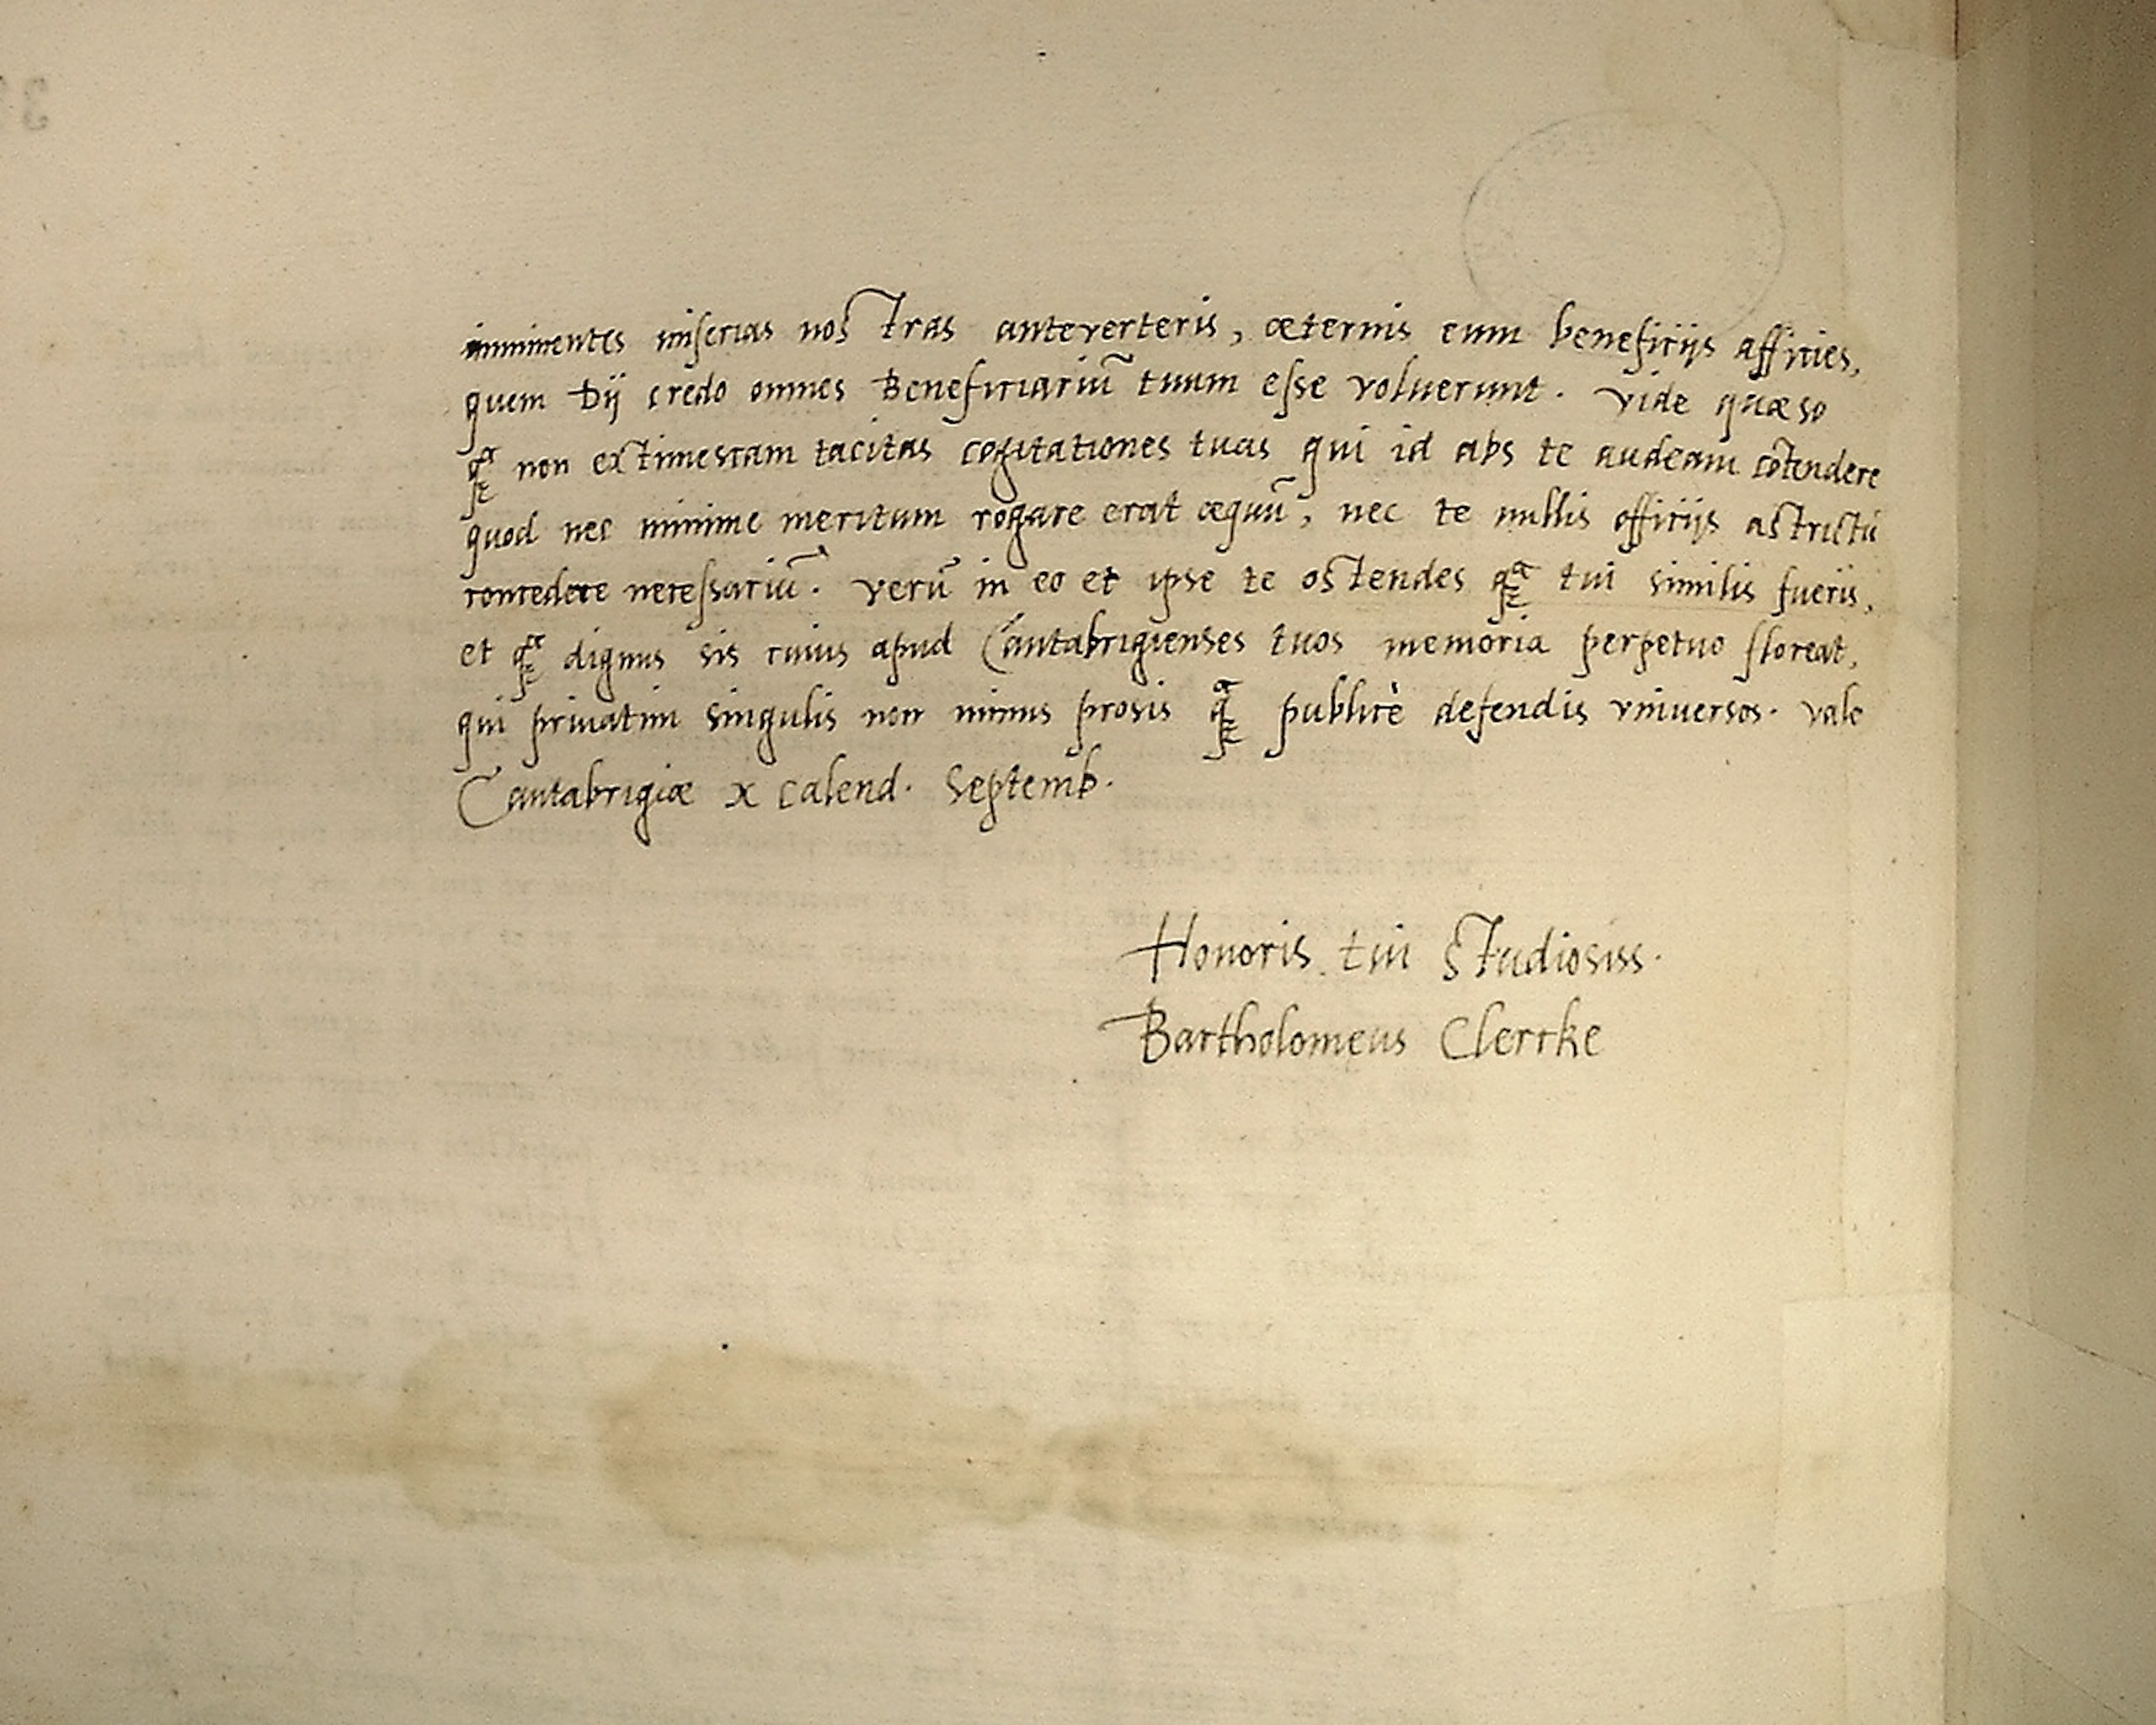 imminentes miserias nostras anteverteris, æternis eum beneficijs afficies,
quem Dij credo omnes Beneficiariū tuum esse voluerunt. vide quæso
q̃ non extimescam tacitas cogitationes tuas qui id abs te audeam cōtendere
quod nec minime meritum rogare erat æquū, nec te nullis officijs astrictū
concedere necessariū. verū in eo et ipse te ostendes q̃ tui similis fueris,
et q̃ dignus sis cuius apud Cantabrigienses tuos memoria perpetuo floreat,
qui priuatim singulis non minus prosis q̃ publicè defendis vniuersos. vale
Cantabrigiæ x calend. Septemb.
Honoris tui studiosiss.
Bartholomeus Clercke